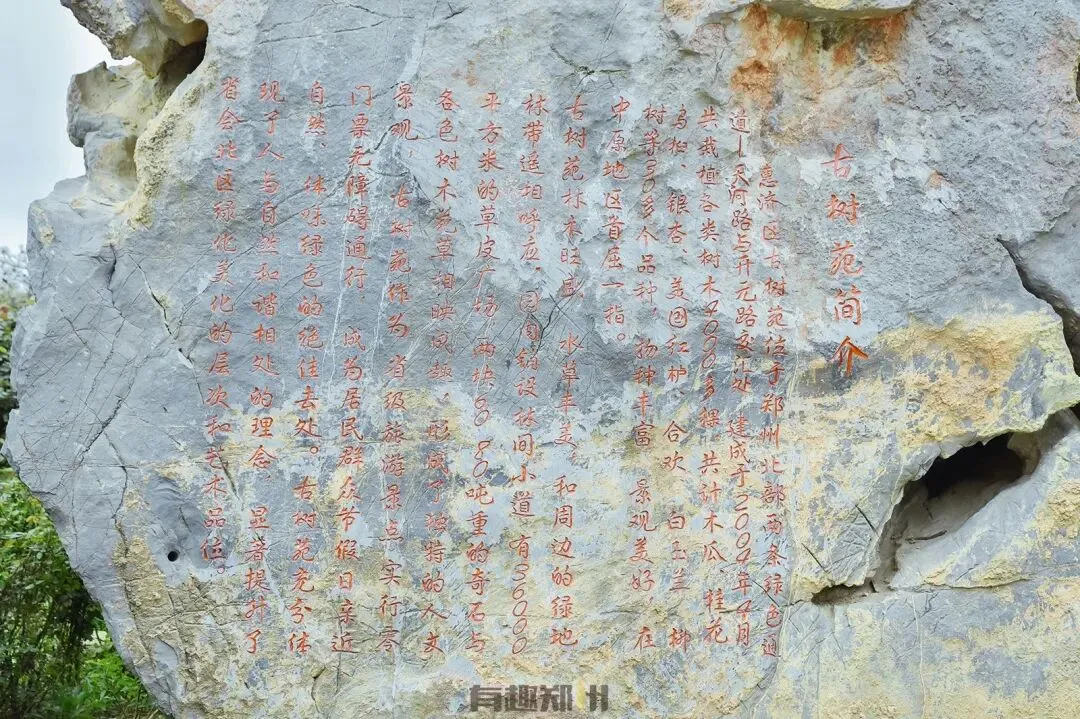 古树苑简介
惠济区古树苑位于郑州北部两条绿色通
道—天河路与开元路交汇处 建成于2004年4月
共栽植各类树木4000多棵 共计木瓜、桂花
乌桕、银杏、美国红栌、合欢 白玉兰 柳
树等30多个品种，物种丰富 景观美好 在
中原地区首屈一指。
古树苑林木旺盛，水草丰美。和周边的绿地
林带遥相呼应，园内铺设林间小道 有36000
平方米的草皮广场，两块60 80吨重的奇石与
各色树木花草相映成趣，形成了独特的人文
景观，古树苑作为省级旅游景点实行零
门票无障碍通行，成为居民群众节假日亲近
自然、体味绿色的绝佳去处。古树苑充分体
现了人与自然和谐相处的理念，显著提升了
省会北区绿化美化的层次和艺术品位。
有趣郑州